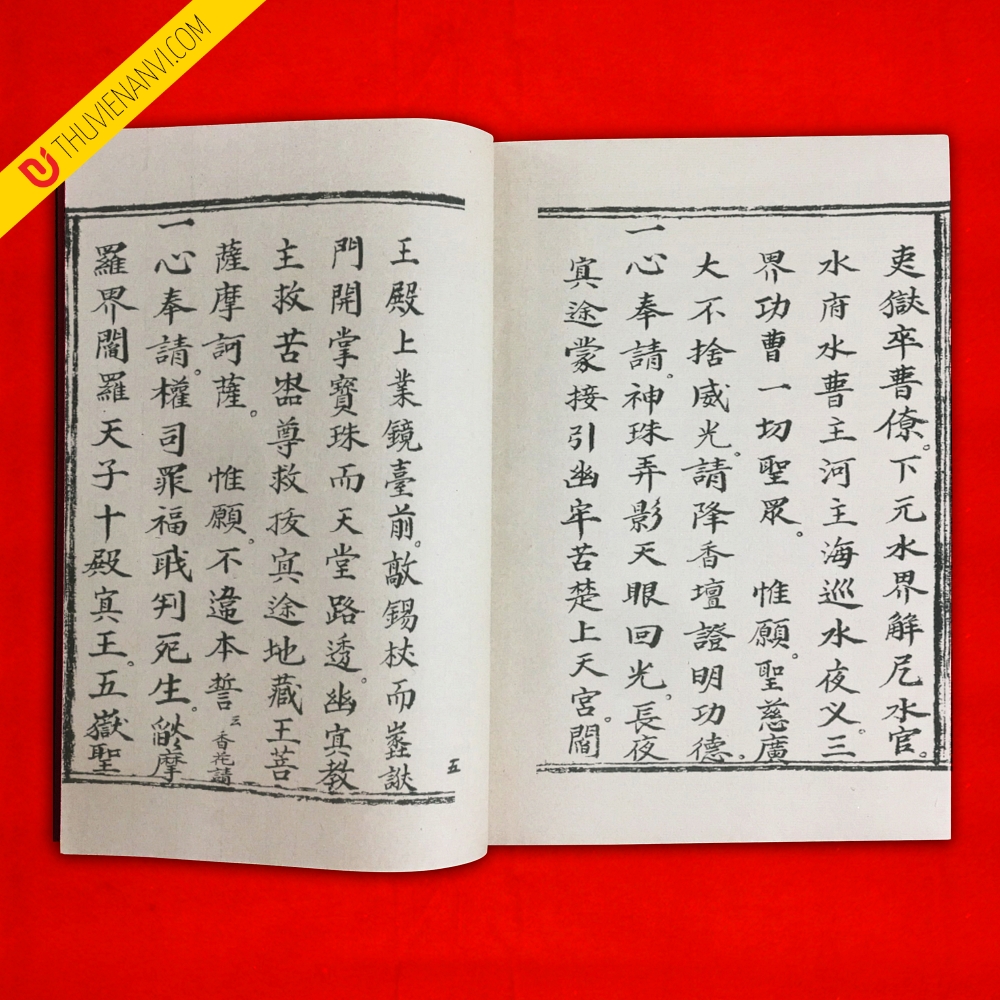 THUVIENANVI.COM
吏獄卒曹僚。下元水界解厄水官。
水府水曹主河主海巡水夜义。三
界功曹一切聖眾。惟願。聖慈廣
大不捨威光。請降香壇證明功德。
一心奉請。神珠弄影天眼回光。長夜
冥途蒙接引幽牢苦楚上天宮。閻
五
王殿上業鏡臺前。敲錫杖而
門開掌寶珠而天堂路透。幽冥教
主救苦尊救拔冥途地藏王菩
薩摩訶薩。惟願。不違本誓 三 香花請
一心奉請。權司罪福職判死生。摩
羅界閻羅天子十殿冥王。五嶽聖